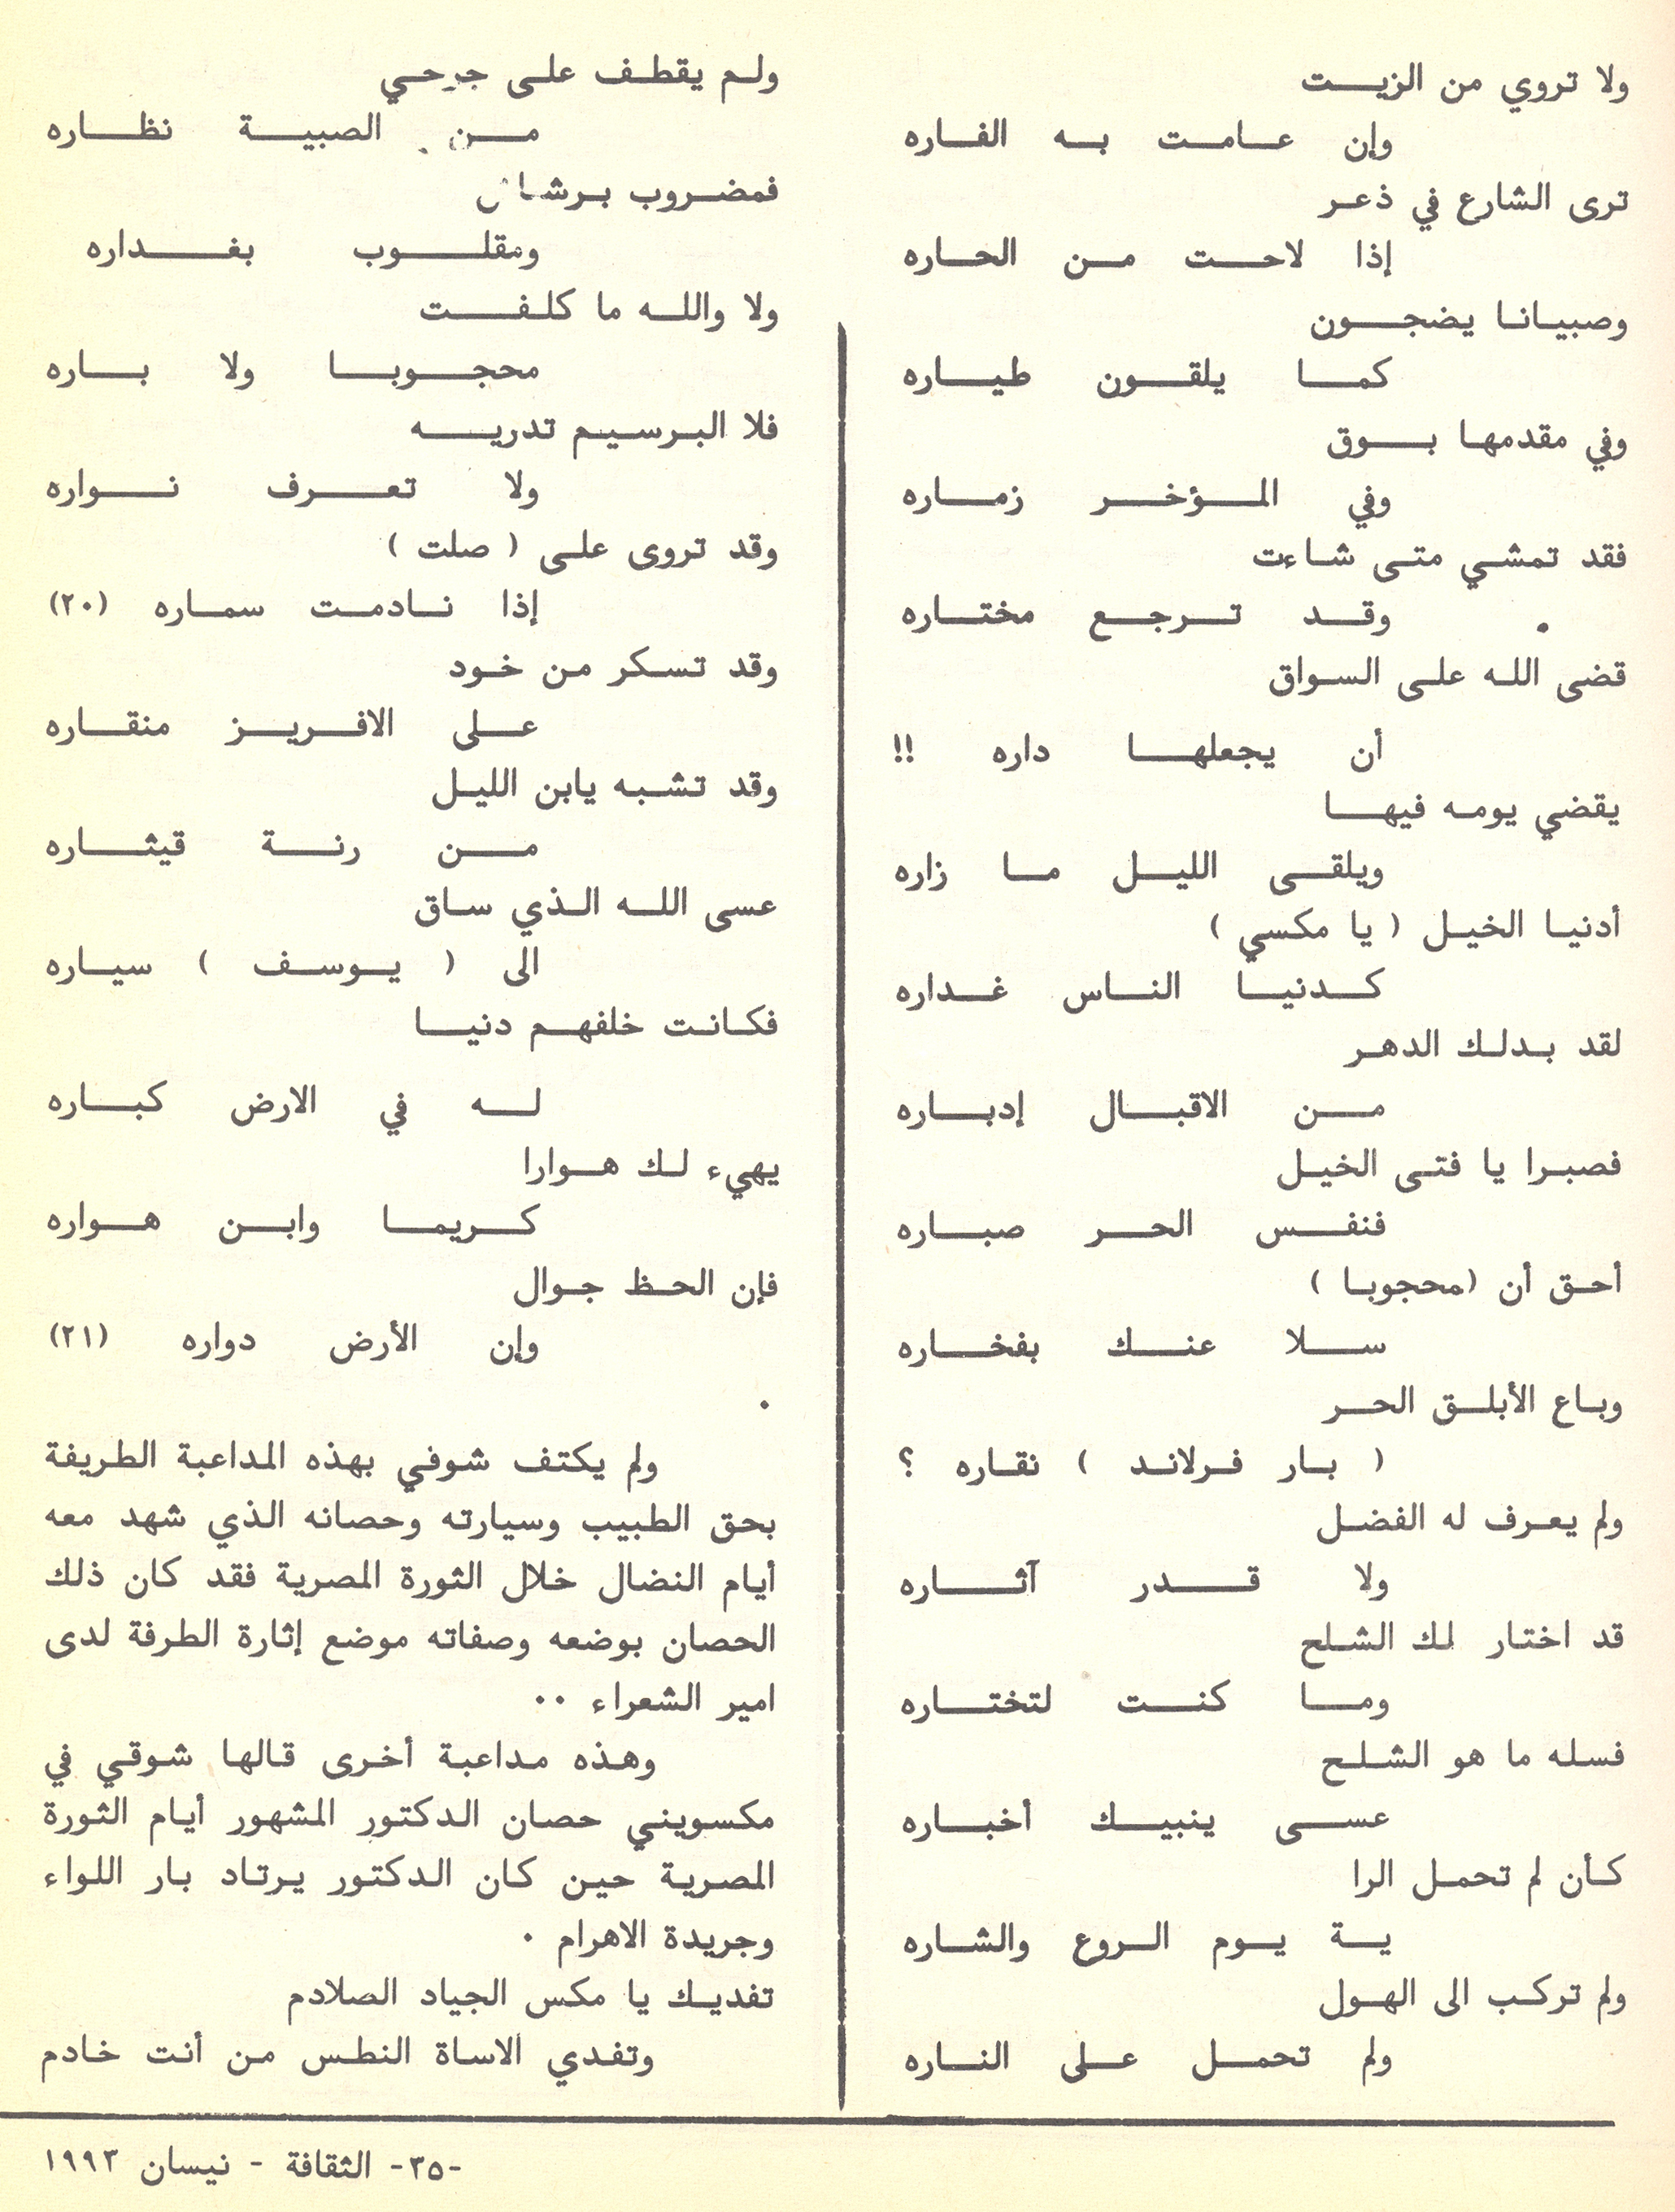 ولا تروي من الزيت
وإن عامت به الفاره
ترى الشارع في ذعر
إذا لاحت من الحاره
وصبيانا يضجون
كما يلقون طياره
وفي مقدمها بوق
وفي المؤخر زماره
فقد تمشي متى شاءت
وقد ترجع مختاره
قضى الله على السواق
أن يجعلها داره !!
يقضي يومه فيها
ويلقى الليل ما زاره
أدنيا الخيل ( يا مكسي )
كدنيا الناس غداره
لقد بدلك الدهر
من الاقبال إدباره
فصبرا يا فتى الخيل
فنفس الحر صباره
أحق أن (محجوبا )
سلا عنك بفخاره
وباع الأبلق الحر
( بار فرلاند ) نقاره ؟
ولم يعرف له الفضل
ولا قدر آثاره
قد اختار لك الشلح
وما كنت لتختاره
فسله ما هو الشلح
عسى ينبيك أخباره
كأن لم تحمل الرا
ية يوم الروع والشاره
ولم تركب الى الهول
ولم تحمل على الناره
ولم يقطف على جرحي
من الصبية نظاره
فمضروب برشاش
ومقلوب بغداره
ولا والله ما كلفت
محجوبا ولا باره
فلا البرسيم تدريه
ولا تعرف نواره
وقد تروى على ( صلت )
إذا نادمت سماره (٢٠)
وقد تسكر من خود
على الافريز منقاره
وقد تشبه يابن الليل
من رنة قيثاره
عسى الله الذي ساق
الى ( يوسف ) سياره
فكانت خلفهم دنيا
له في الارض كباره
يهيء لك هوارا
كريما وابن هواره
فإن الحظ جوال
وإن الأرض دواره (٢١)
.
ولم يكتف شوفي بهذه المداعبة الطريفة
بحق الطبيب وسيارته وحصانه الذي شهد معه
أيام النضال خلال الثورة المصرية فقد كان ذلك
الحصان بوضعه وصفاته موضع إثارة الطرفة لدى
امير الشعراء ..
وهذه مداعبة أخرى قالها شوقي في
مكسويني حصان الدكتور المشهور أيام الثورة
المصرية حين كان الدكتور يرتاد بار اللواء
وجريدة الاهرام .
تفديك يا مكس الجياد الصلادم
وتفدي الاساة النطس من أنت خادم
-٣٥- الثقافة - نيسان ١٩٩٣